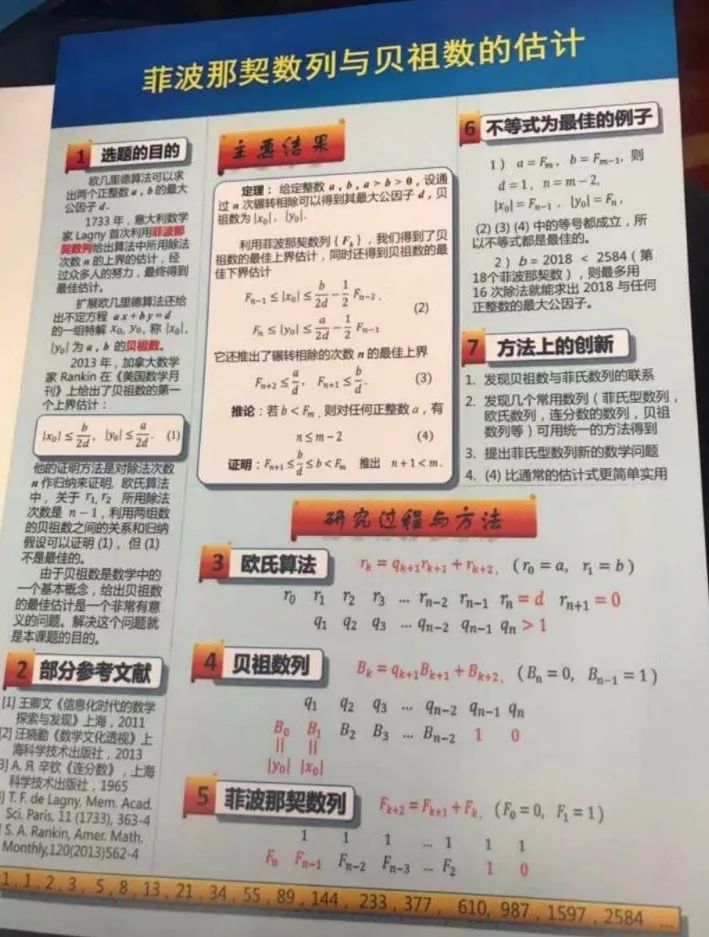 菲波那契数列与贝祖数的估计
1 选题的目的
欧几里德算法可以求
出两个正整数 a, b 的最大
公因子 d.
1733 年，意大利数学
家 Lagny 首次利用菲波那
契数列给出算法中所用除法
次数 n 的上界的估计，经
过众多人的努力，最终得到
最佳估计。
扩展欧几里德算法还给
出不定方程 ax+by=d
的一组特解 x₀, y₀, 称 |x₀|,
|y₀| 为 a, b 的贝祖数。
2013 年，加拿大数学
家 Rankin 在《美国数学月
刊》上给出了贝祖数的第一
个上界估计：
|x₀| ≤ b/2d, |y₀| ≤ a/2d. (1)
他的证明方法是对除法次数
n 作归纳来证明, 欧氏算法
中，关于 r₁, r₂ 所用除法
次数是 n－1，利用两组数
的贝祖数之间的关系和归纳
假设可以证明 (1)，但 (1)
不是最佳的。
由于贝祖数是数学中的
一个基本概念，给出贝祖数
的最佳估计是一个非常有意
义的问题。解决这个问题就
是本课题的目的。
2 部分参考文献
[1] 王卿文《信息化时代的数学
探索与发现》上海，2011
[2] 汪晓勤《数学文化透视》上
海科学技术出版社，2013
3] А. Я. 辛钦《连分数》，上海
科学技术出版社，1965
] T. F. de Lagny, Mem. Acad.
Sci. Paris, 11 (1733), 363-4
] S. A. Rankin, Amer. Math.
Monthly,120(2013)562-4
主要结果
定理：给定整数 a, b, a > b > 0, 设通
过 n 次辗转相除可以得到其最大公因子 d，贝
祖数为 |x₀|, |y₀|.
利用菲波那契数列 {Fₖ}，我们得到了贝
祖数的最佳上界估计，同时还得到贝祖数的最
佳下界估计
Fₙ₋₁ ≤ |x₀| ≤ b/2d − 1/2 Fₙ₋₂,
(2)
Fₙ ≤ |y₀| ≤ a/2d − 1/2 Fₙ₋₁
它还推出了辗转相除的次数 n 的最佳上界
Fₙ₊₂ ≤ a/d, Fₙ₊₁ ≤ b/d. (3)
推论：若 b < Fₘ, 则对任何正整数 a，有
n ≤ m − 2 (4)
证明：Fₙ₊₁ ≤ b/d ≤ b < Fₘ 推出 n+1 < m.
6 不等式为最佳的例子
1） a = Fₘ, b = Fₘ₋₁, 则
d = 1, n = m − 2,
|x₀| = Fₙ₋₁, |y₀| = Fₙ,
(2) (3) (4) 中的等号都成立，所
以不等式都是最佳的。
2）b = 2018 < 2584（第
18个菲波那契数），则最多用
16 次除法就能求出 2018 与任何
正整数的最大公因子。
7 方法上的创新
1. 发现贝祖数与菲氏数列的联系
2. 发现几个常用数列（菲氏型数列，
欧氏数列，连分数的数列，贝祖
数列等）可用统一的方法得到
3. 提出菲氏型数列新的数学问题
4. (4) 比通常的估计式更简单实用
研究过程与方法
3 欧氏算法 rₖ = qₖ₊₁rₖ₊₁ + rₖ₊₂, (r₀ = a, r₁ = b)
r₀ r₁ r₂ r₃ … rₙ₋₂ rₙ₋₁ rₙ = d rₙ₊₁ = 0
q₁ q₂ q₃ … qₙ₋₂ qₙ₋₁ qₙ > 1
4 贝祖数列 Bₖ = qₖ₊₁Bₖ₊₁ + Bₖ₊₂, (Bₙ = 0, Bₙ₋₁ = 1)
q₁ q₂ q₃ … qₙ₋₂ qₙ₋₁ qₙ
B₀ B₁ B₂ B₃ … Bₙ₋₂ 1 0
|| ||
|y₀| |x₀|
5 菲波那契数列 Fₖ₊₂ = Fₖ₊₁ + Fₖ, (F₀ = 0, F₁ = 1)
1 1 1 … 1 1 1
Fₙ Fₙ₋₁ Fₙ₋₂ Fₙ₋₃ … F₂ 1 0
1, 1, 2, 3, 5, 8, 13, 21, 34, 55, 89, 144, 233, 377, 610, 987, 1597, 2584 …